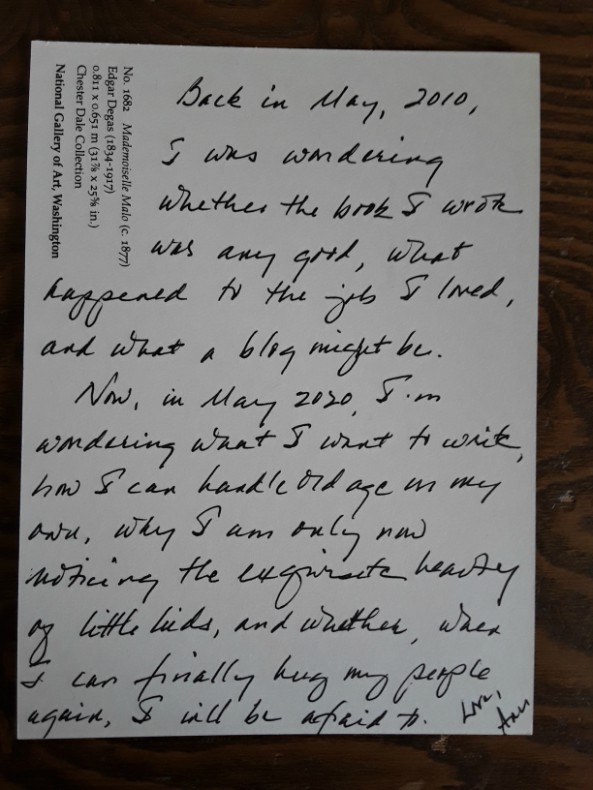 No. 1682 Mademoiselle Malo (c. 1877)
Edgar Degas (1834-1917)
0.811 x 0.651 m (31⅞ x 25⅝ in.)
Chester Dale Collection
National Gallery of Art, Washington
Back in May, 2010,
I was wondering
whether the book I wrote
was any good, what
happened to the job I loved,
and what a blog might be.
Now, in May 2020, I'm
wondering what I want to write,
how I can handle old age on my
own, why I am only now
noticing the exquisite beauty
of little kids, and whether, when
I can finally hug my people
again, I will be afraid to.
Love,
Ann